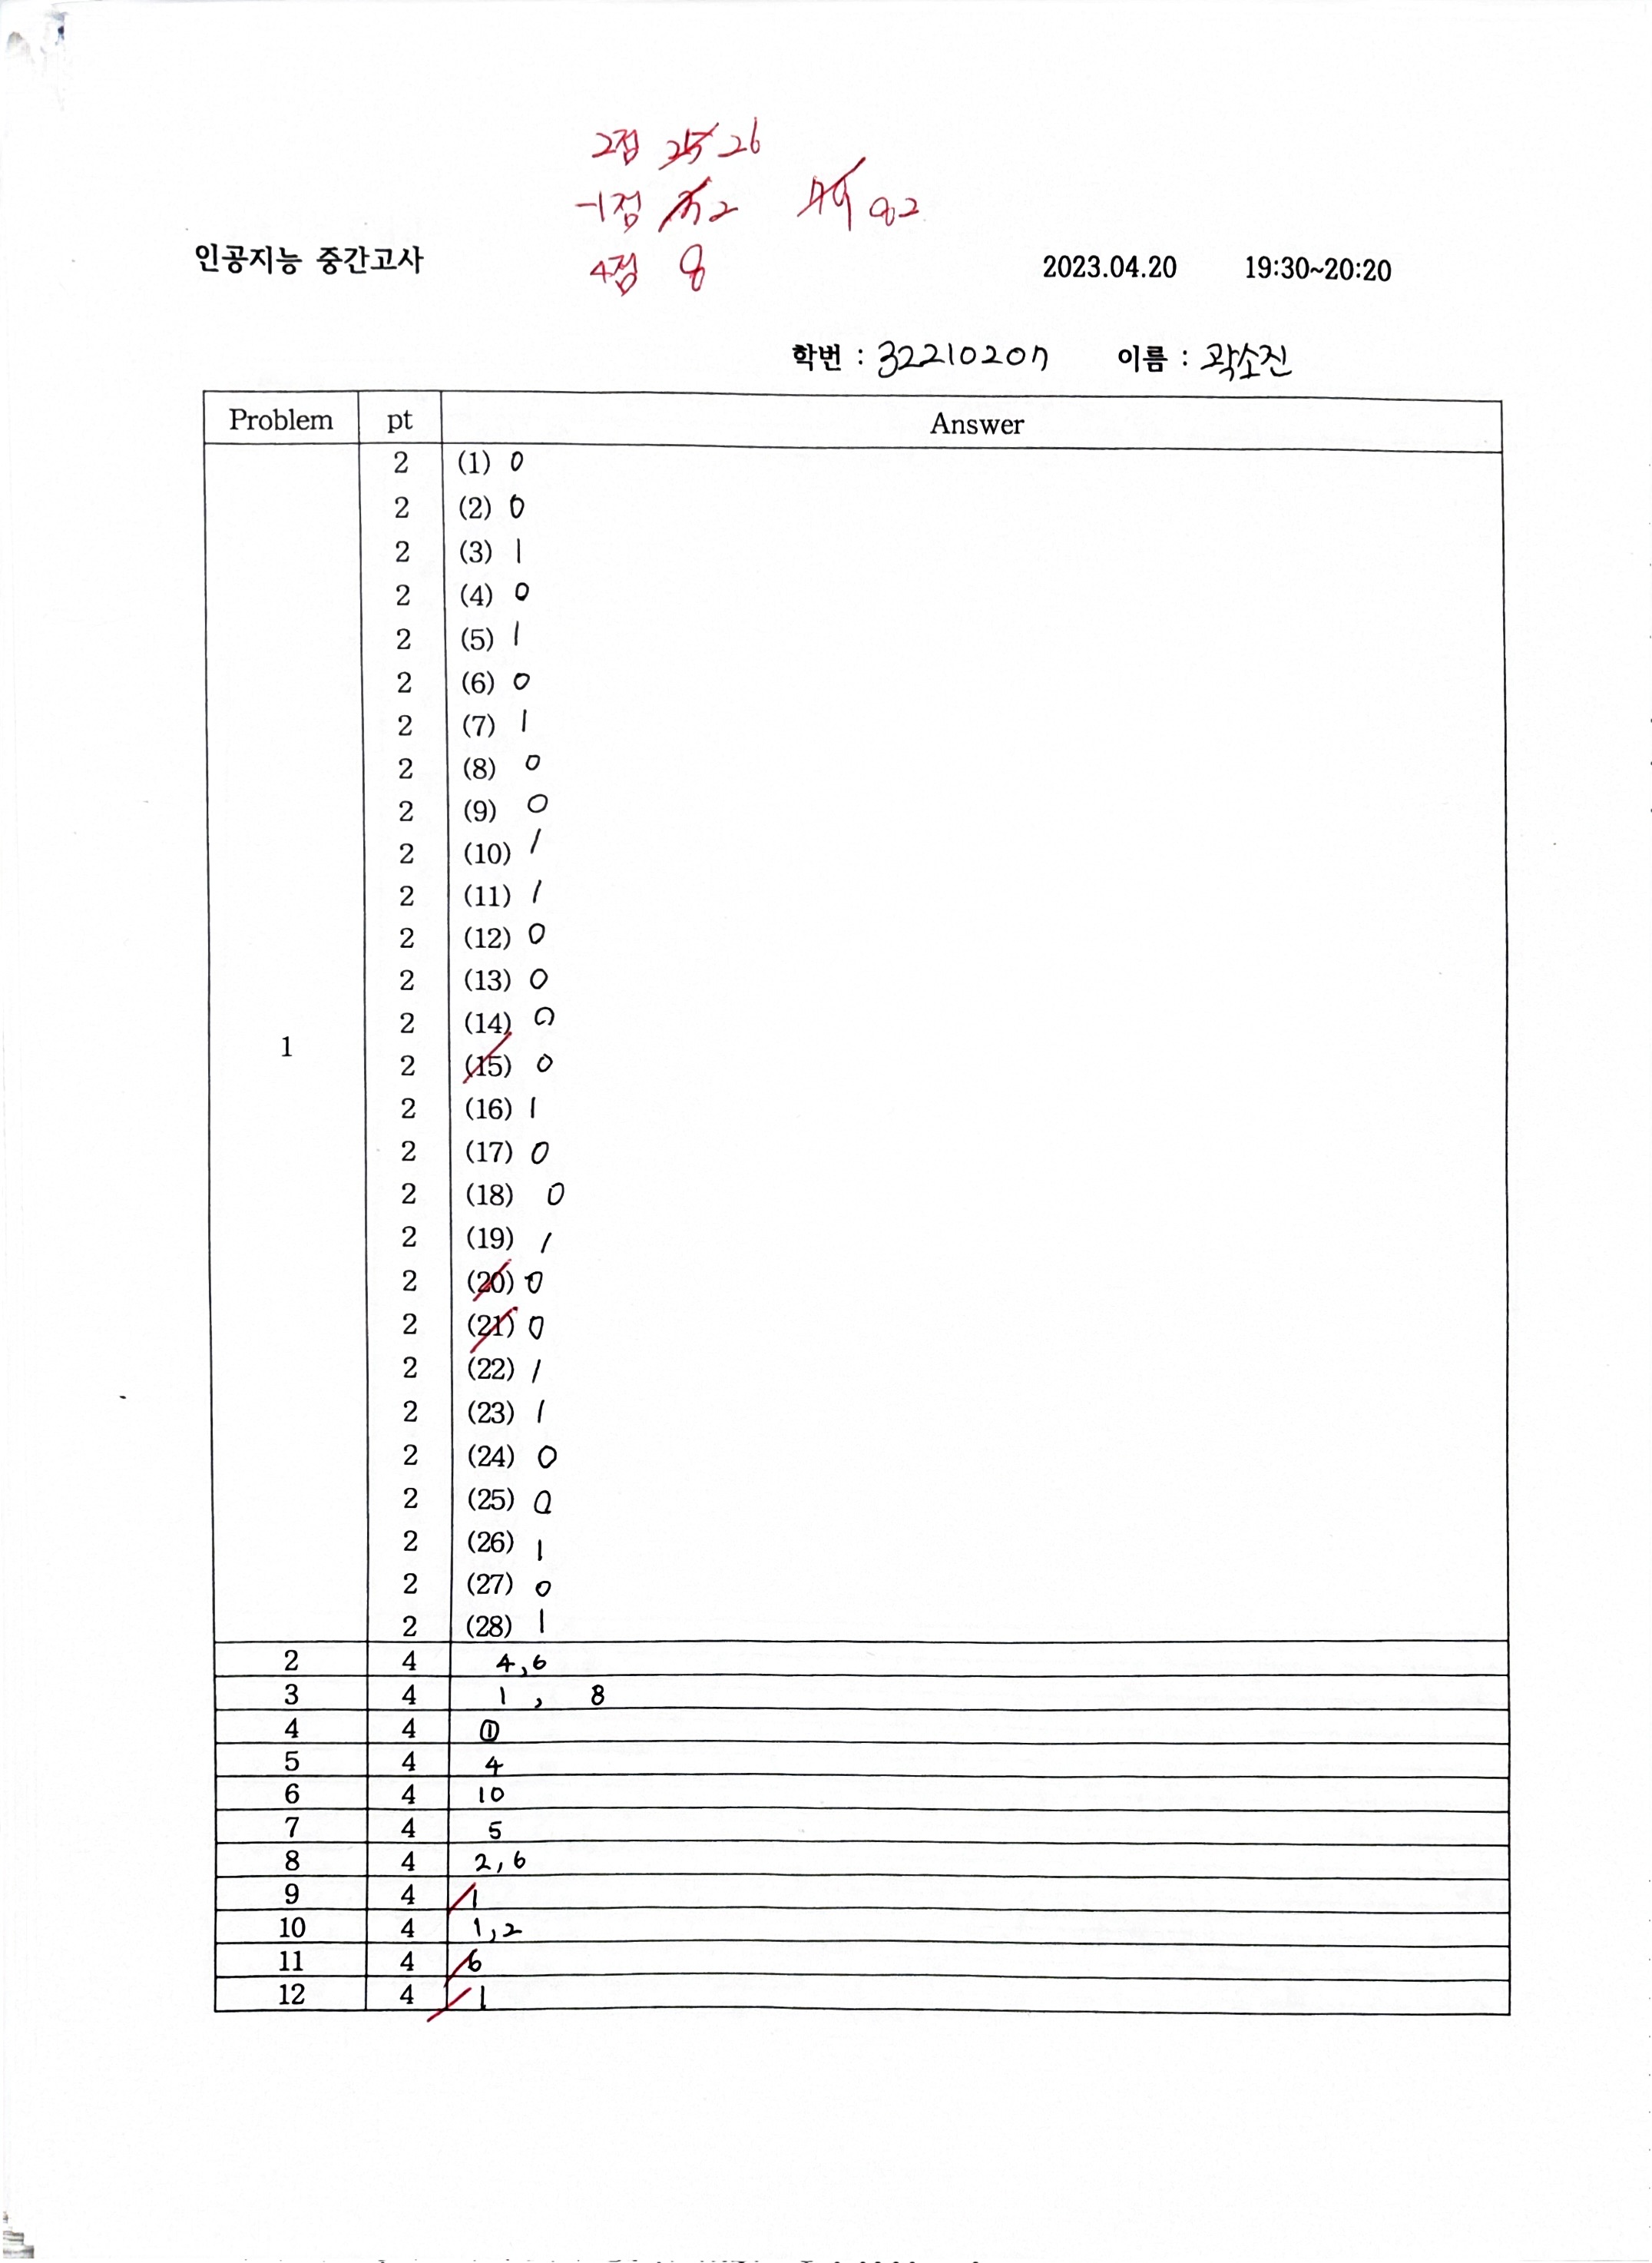 2점 25 26
-1점 2 82
4점 8
인공지능 중간고사 2023.04.20 19:30~20:20
학번 : 32210207 이름 : 곽소진
Problem pt Answer
2 (1) 0
2 (2) 0
2 (3) 1
2 (4) 0
2 (5) 1
2 (6) 0
2 (7) 1
2 (8) 0
2 (9) 0
2 (10) 1
2 (11) 1
2 (12) 0
2 (13) 0
2 (14) 0
1
2 (15) 0
2 (16) 1
2 (17) 0
2 (18) 0
2 (19) 1
2 (20) 0
2 (21) 0
2 (22) 1
2 (23) 1
2 (24) 0
2 (25) 0
2 (26) 1
2 (27) 0
2 (28) 1
2 4 4,6
3 4 1 , 8
4 4 ①
5 4 4
6 4 10
7 4 5
8 4 2,6
9 4 1
10 4 1,2
11 4 6
12 4 1